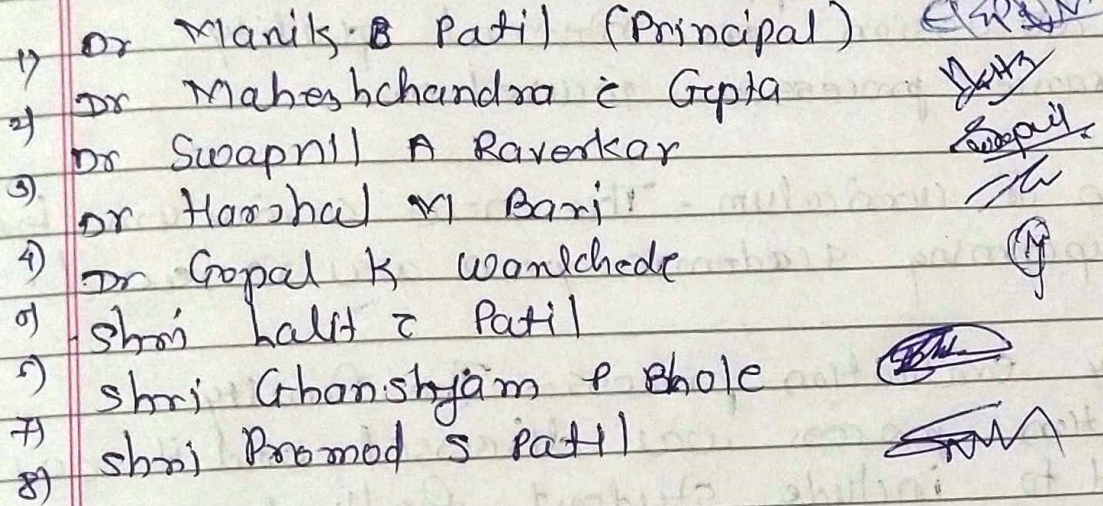 1) Dr Manik B Patil (Principal)
2) Dr Maheshchandra C Gupta
3) Dr Swapnil A Raverkar
4) Dr Harshal M Bari
Dr Gopal K Wankhede
Shri Lalit C Patil
7) Shri Ghanshyam P Bhole
8) Shri Promod S Patil